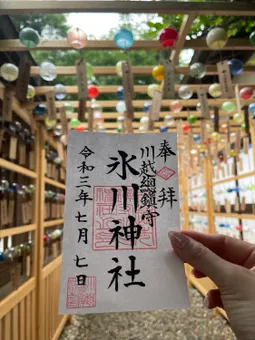 奉拝
川越總鎮守
氷川神社
令和三年七月七日